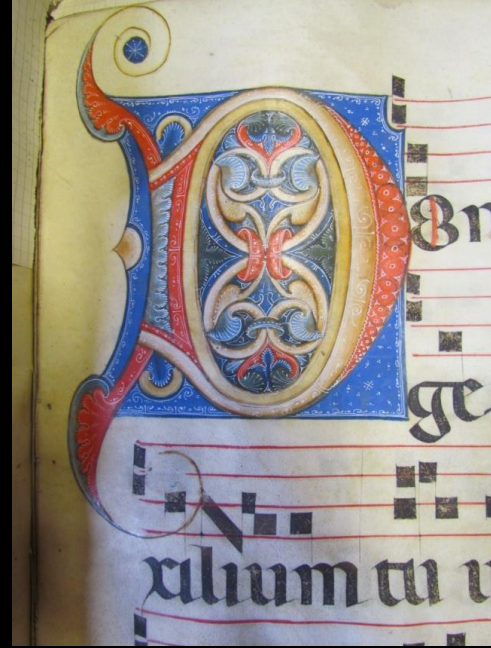 D
ge
xilium tu